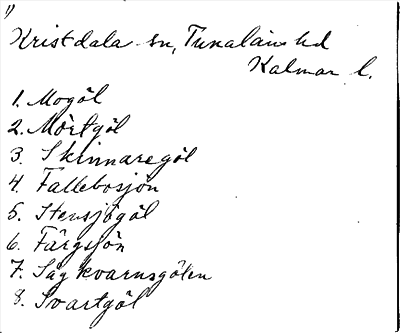 1)
Kristdala sn, Tunaläns hd
Kalmar l.
1. Mogöl
2. Mörtgöl
3. Skinnaregöl
4. Fallebosjön
5. Stensjögöl
6. Färgsjön
7. Sågkvarnsgölen
8. Svartgöl